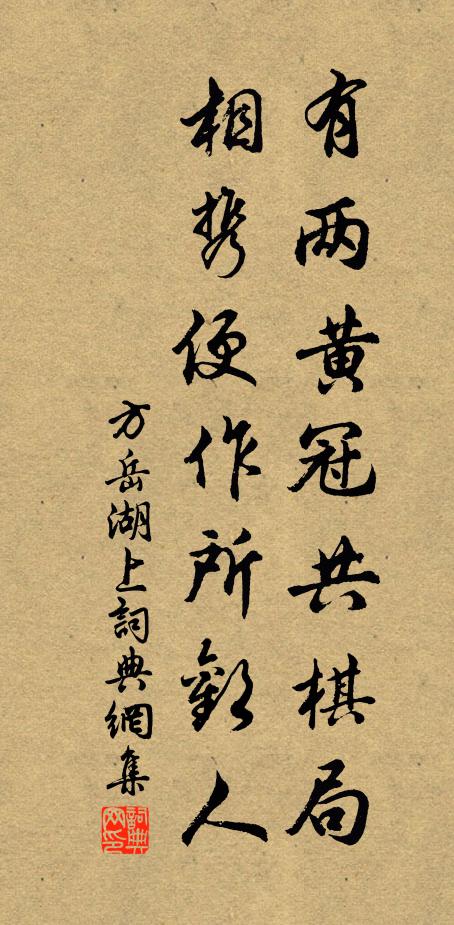 有两黄冠共棋局
相携便作所歡人
方岳湖上詞典網集
詞典网印